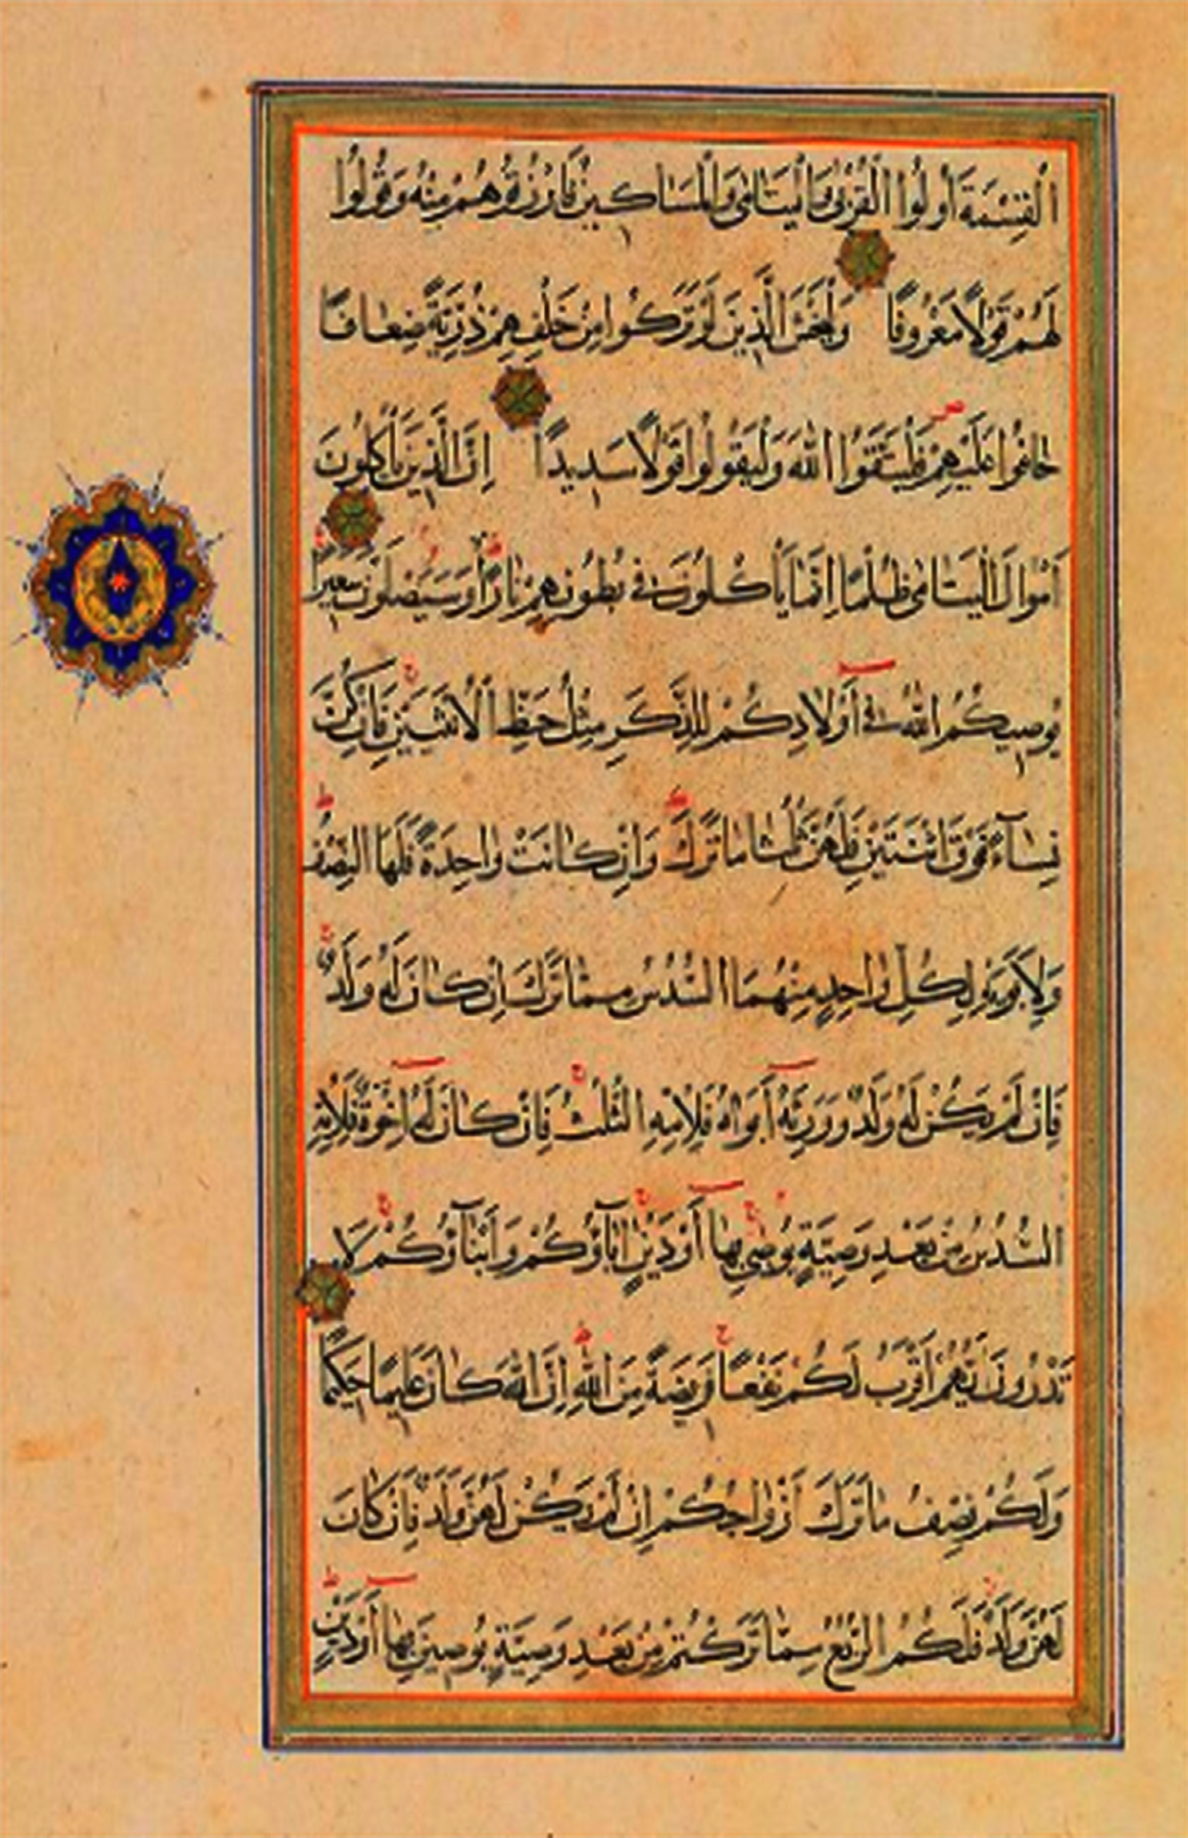 الْقِسْمَةَ أُولُوا الْقُرْبٰى وَالْيَتَامٰى وَالْمَسَاكِينُ فَارْزُقُوهُمْ مِنْهُ وَقُولُوا
لَهُمْ قَوْلًا مَعْرُوفًا وَلْيَخْشَ الَّذِينَ لَوْ تَرَكُوا مِنْ خَلْفِهِمْ ذُرِّيَّةً ضِعَافًا
خَافُوا عَلَيْهِمْ فَلْيَتَّقُوا اللّٰهَ وَلْيَقُولُوا قَوْلًا سَدِيدًا اِنَّ الَّذِينَ يَأْكُلُونَ
اَمْوَالَ الْيَتَامٰى ظُلْمًا اِنَّمَا يَأْكُلُونَ فِي بُطُونِهِمْ نَارًا وَسَيَصْلَوْنَ سَعِيرًا
يُوصِيكُمُ اللّٰهُ فِي أَوْلَادِكُمْ لِلذَّكَرِ مِثْلُ حَظِّ الْأُنْثَيَيْنِ فَاِنْ كُنَّ
نِسَآءً فَوْقَ اثْنَتَيْنِ فَلَهُنَّ ثُلُثَا مَا تَرَكَ وَاِنْ كَانَتْ وَاحِدَةً فَلَهَا النِّصْفُ
وَلِأَبَوَيْهِ لِكُلِّ وَاحِدٍ مِنْهُمَا السُّدُسُ مِمَّا تَرَكَ اِنْ كَانَ لَهُ وَلَدٌ
فَاِنْ لَمْ يَكُنْ لَهُ وَلَدٌ وَوَرِثَهُ أَبَوَاهُ فَلِأُمِّهِ الثُّلُثُ فَاِنْ كَانَ لَهُ اِخْوَةٌ فَلِأُمِّهِ
السُّدُسُ مِنْ بَعْدِ وَصِيَّةٍ يُوصِي بِهَا أَوْ دَيْنٍ اٰبَآؤُكُمْ وَأَبْنَآؤُكُمْ لَا
تَدْرُونَ أَيُّهُمْ أَقْرَبُ لَكُمْ نَفْعًا فَرِيضَةً مِنَ اللّٰهِ اِنَّ اللّٰهَ كَانَ عَلِيمًا حَكِيمًا
وَلَكُمْ نِصْفُ مَا تَرَكَ أَزْوَاجُكُمْ اِنْ لَمْ يَكُنْ لَهُنَّ وَلَدٌ فَاِنْ كَانَ
لَهُنَّ وَلَدٌ فَلَكُمُ الرُّبُعُ مِمَّا تَرَكْتُمْ مِنْ بَعْدِ وَصِيَّةٍ يُوصِينَ بِهَا أَوْ دَيْنٍ